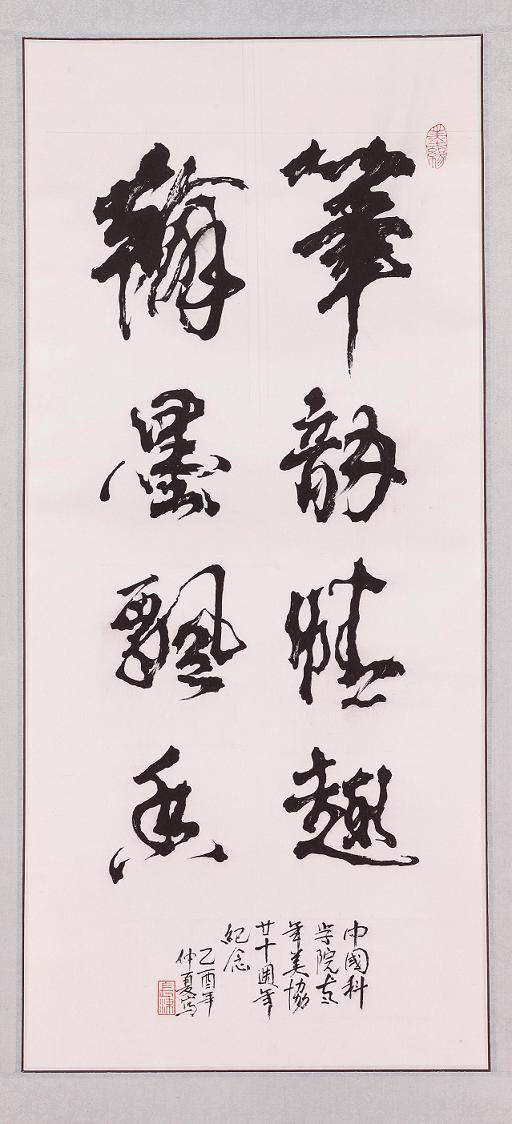 筆韵情趣
翰墨飄香
中國科
学院老
年美協
廿十周年
紀念
乙酉年
仲夏写